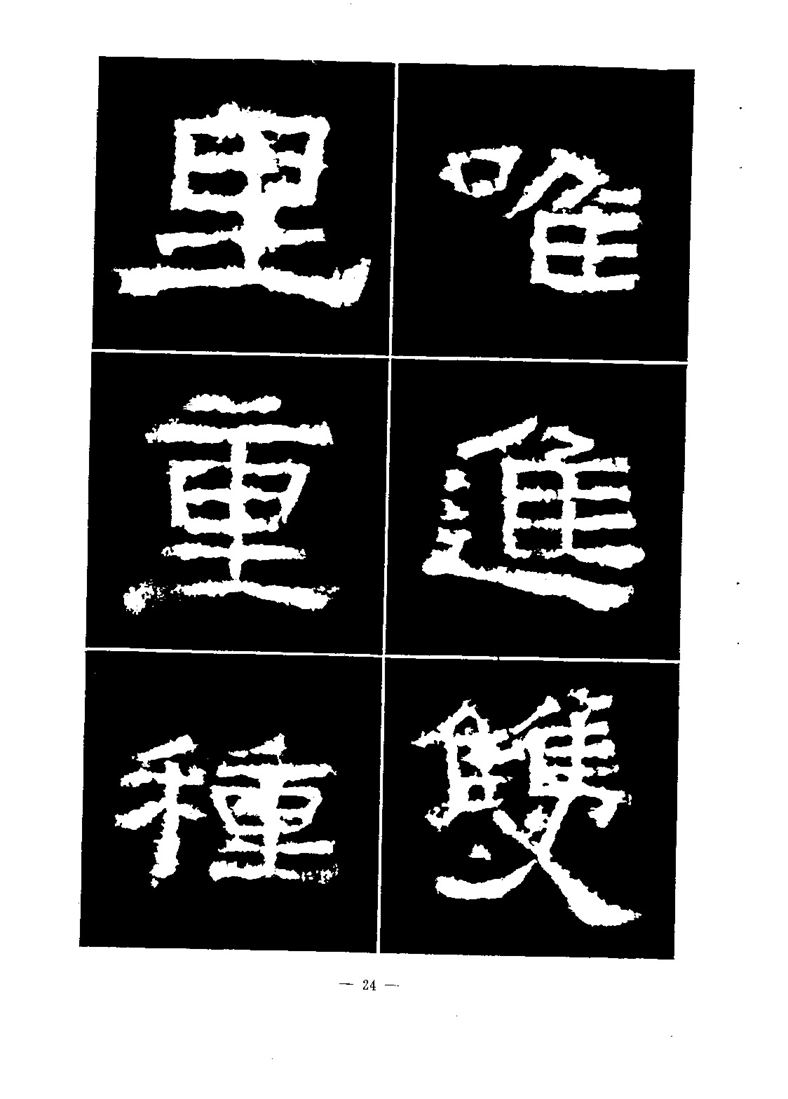 唯進雙
里重種
— 24 —